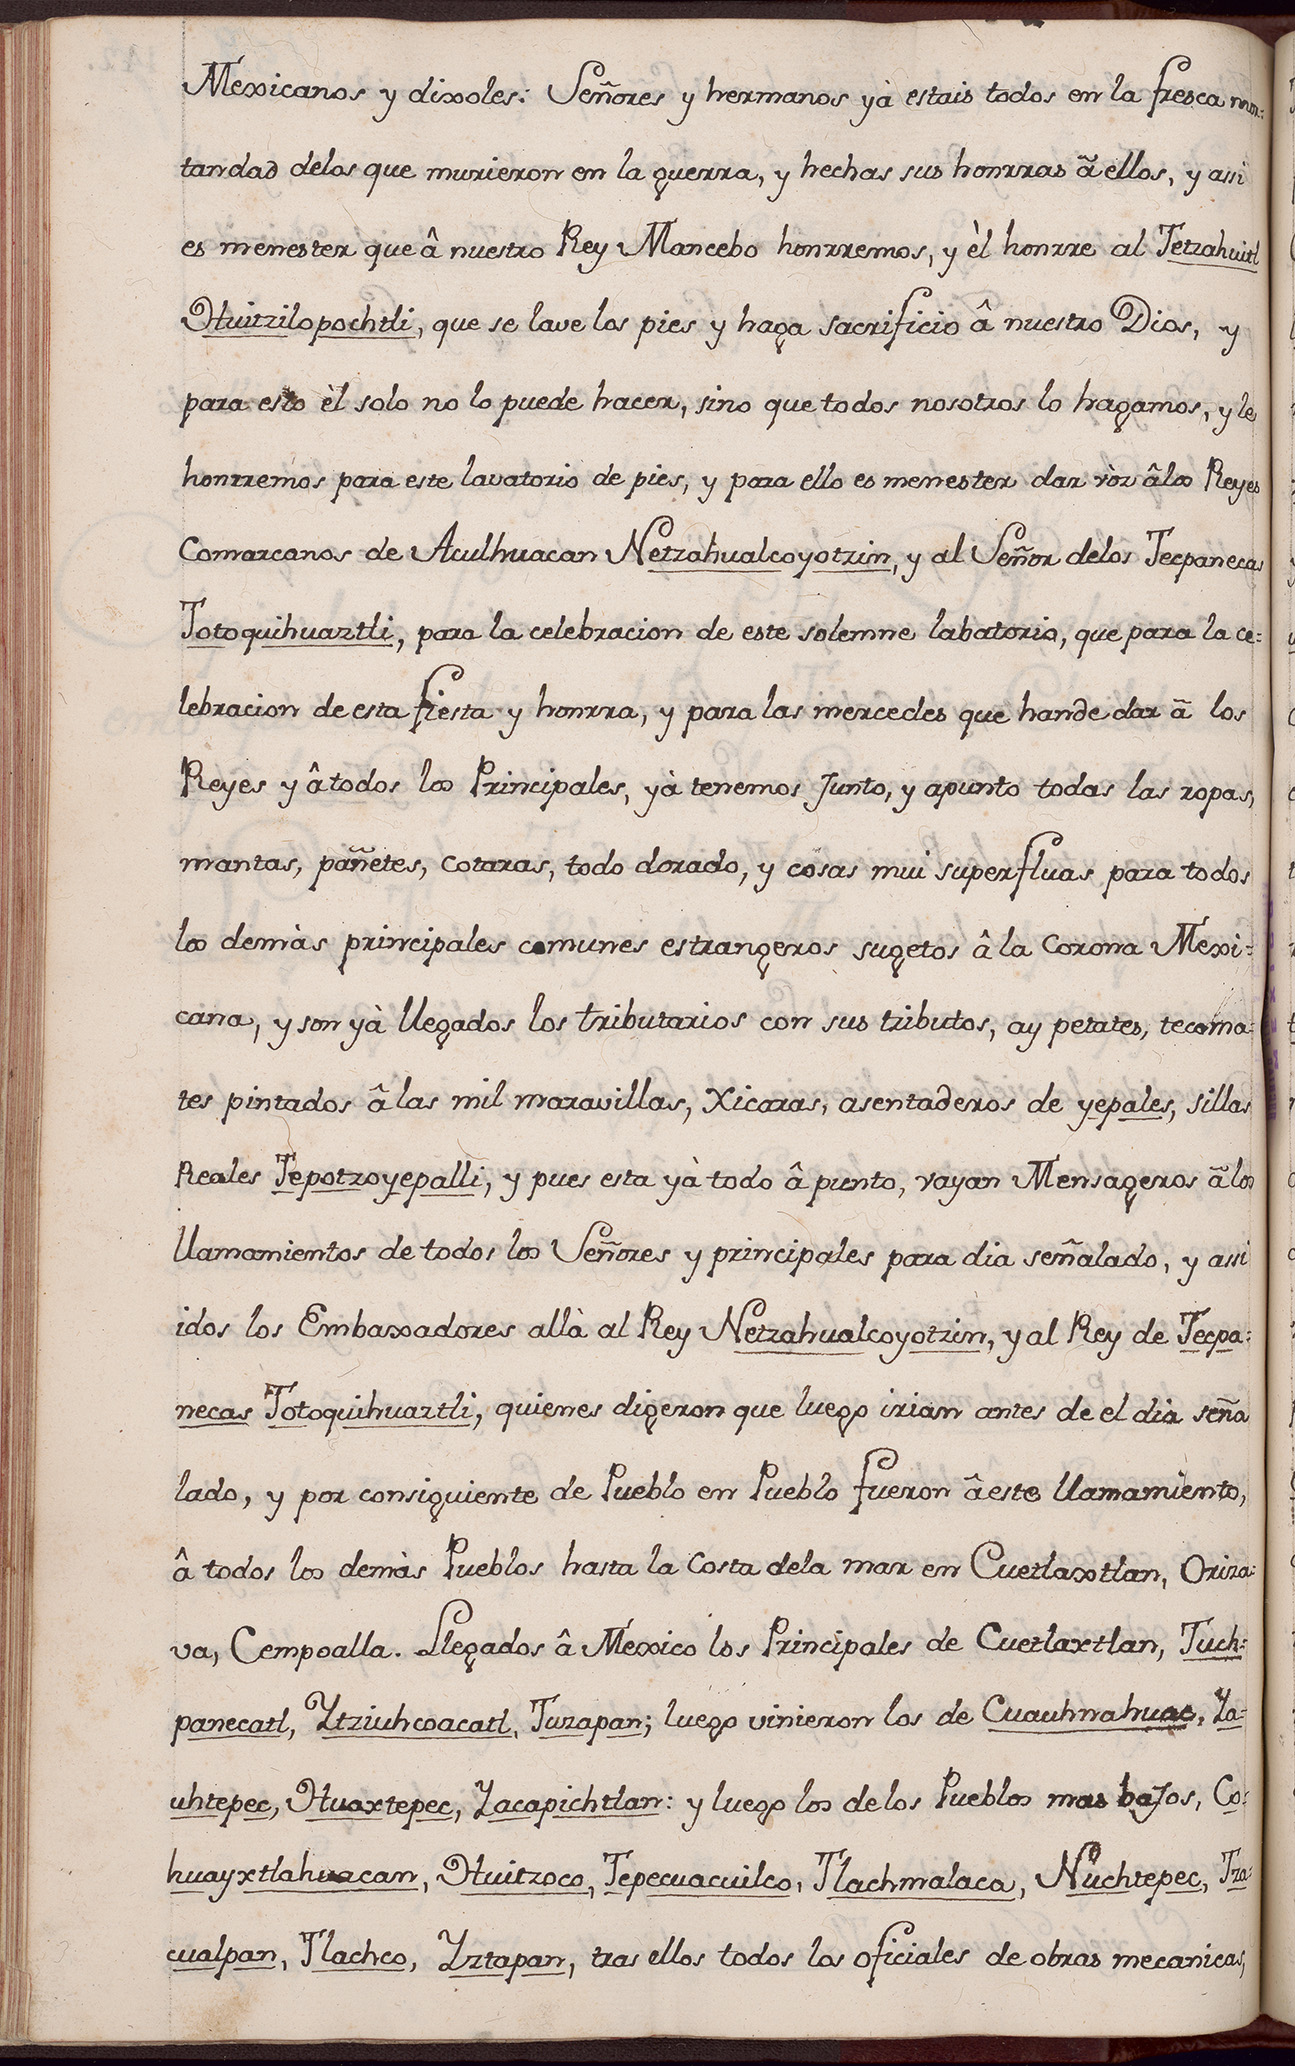 Mexicanos y dixoles: Señores y hermanos yà estais todos en la fresca mor=
tandad delos que murieron en la guerra, y hechas sus honrras â ellos, y assi
es menester que â nuestro Rey Mancebo honrremos, y èl honrre al Tetzahuitl
Huitzilopochtli, que se lave los pies y haga sacrificio â nuestro Dios, y
para esto èl solo no lo puede hacer, sino que todos nosotros lo hagamos, y le
honrremos para este lavatorio de pies, y para ello es menester dar vòz âlos Reyes
Comarcanos de Aculhuacan Netzahualcoyotzin, y al Señor delos Tecpanecas
Totoquihuaztli, para la celebracion de este solemne labatorio, que para la ce=
lebracion de esta fiesta y honrra, y para las mercedes que hande dar â los
Reyes y âtodos los Principales, yà tenemos Junto, y apunto todas las ropas,
mantas, pañetes, cotaras, todo dorado, y cosas mui superfluas para todos
los demàs principales comunes estrangeros sugetos â la Corona Mexi=
cana, y son yà llegados los tributarios con sus tributos, ay petates, tecoma=
tes pintados â las mil maravillas, Xicaras, asentaderos de yepales, sillas
Reales Tepotzoyepalli, y pues esta yà todo â punto, vayan Mensageros âlos
llamamientos de todos los Señores y principales para dia señalado, y assi
idos los Embaxadores allà al Rey Netzahualcoyotzin, y al Rey de Tecpa=
necas Totoquihuaztli, quienes digeron que luego irian antes de el dia seña
lado, y por consiguiente de Pueblo en Pueblo fueron âeste llamamiento,
â todos los demàs Pueblos hasta la Costa dela mar en Cuetlaxtlan, Oriza=
va, Cempoalla. Llegados â Mexico los Principales de Cuetlaxtlan, Tuch=
panecatl, Ytziuhcoacatl, Tuzapan; luego vinieron los de Cuauhnahuac, Ya=
uhtepec, Huaxtepec, Yacapichtlan: y luego los delos Pueblos mas bajos, Co=
huayxtlahuacan, Huitzoco, Tepecuacuilco, Tlachmalaca, Nuchtepec, Tza=
cualpan, Tlachco, Yztapan, tras ellos todos los oficiales de obras mecanicas,